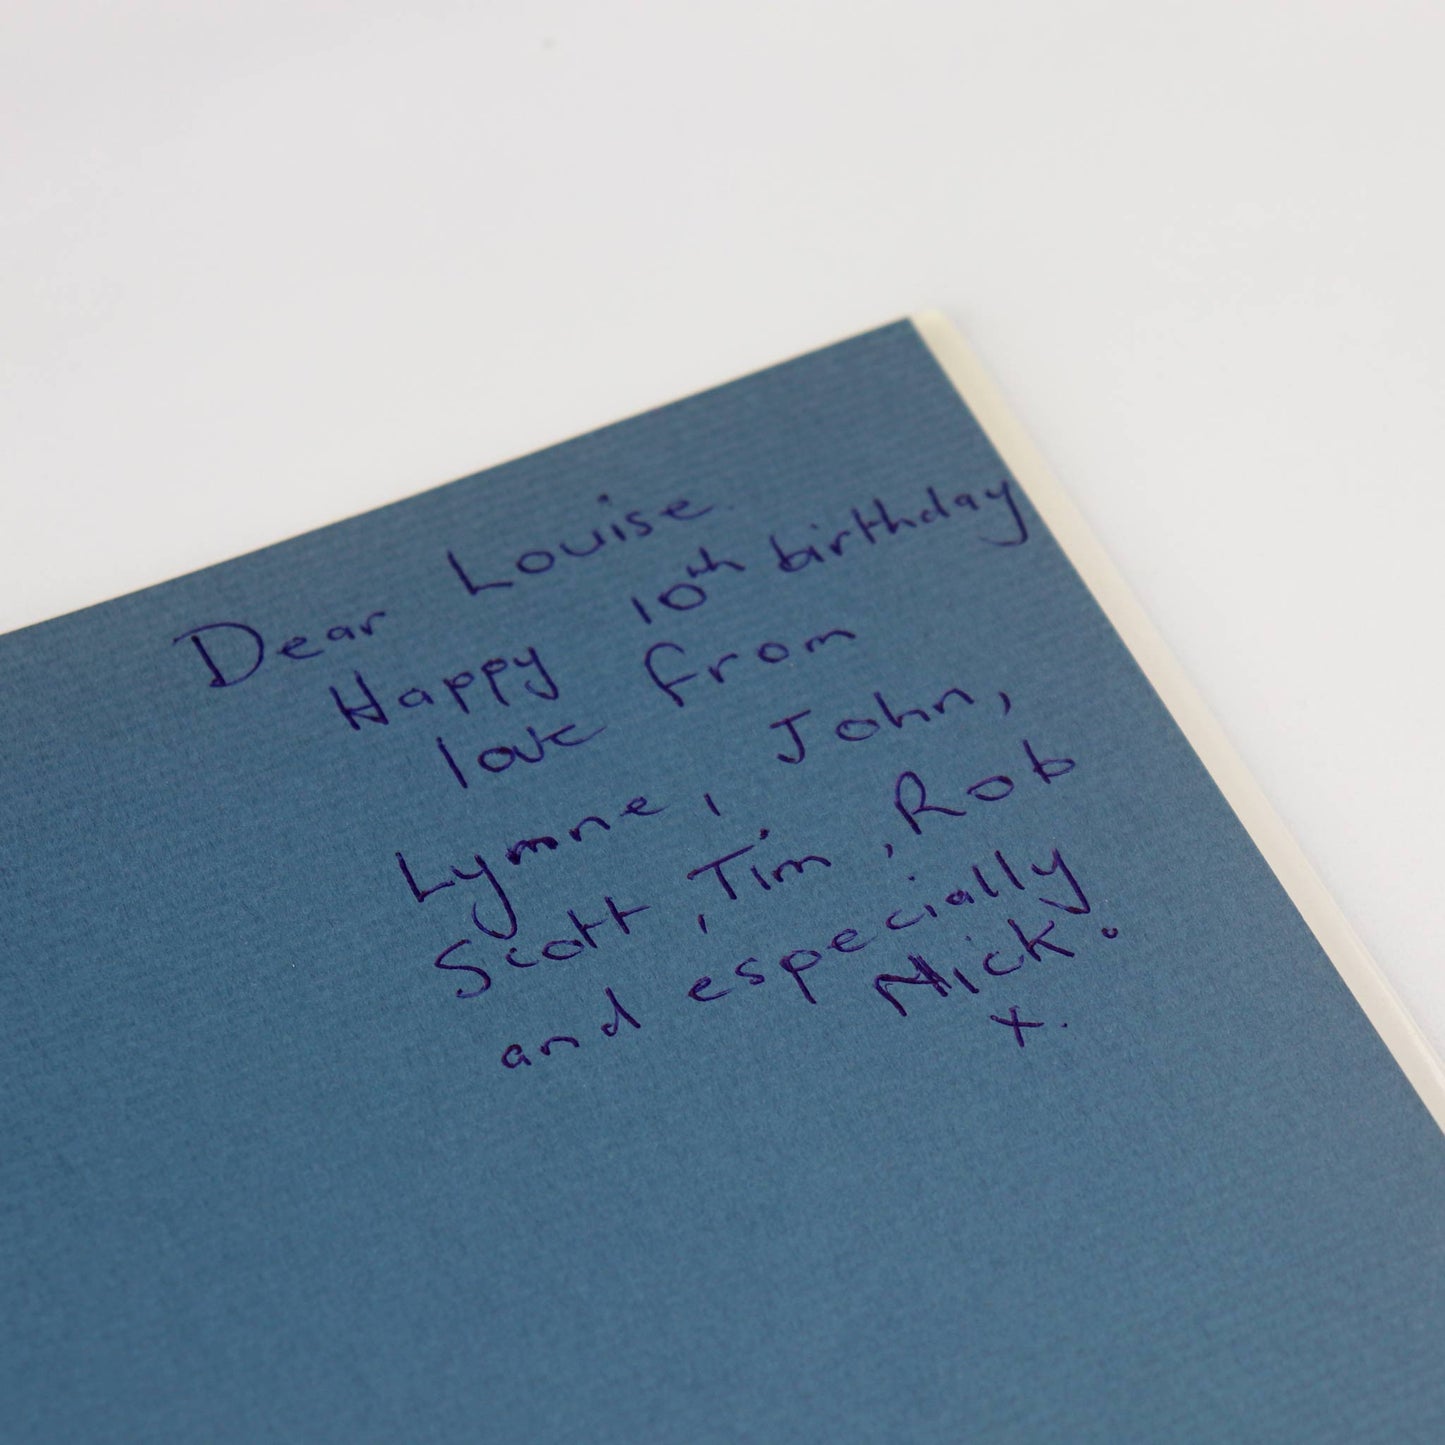 Dear Louise.
Happy 10th birthday
love from
Lymne, John,
Scott, Tim, Rob
and especially
Nick.
x.